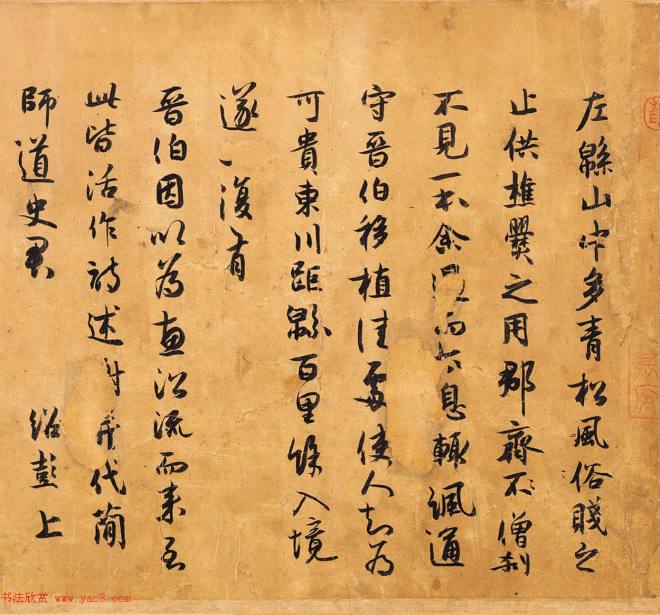 左緜山中多青松風俗賤之
止供樵爨之用郡齋不僧刹
不見一本余過而太息輙諷通
守晉伯移植佳處使人知為
可貴東川距緜百里餘入境
遂一復有
晉伯因以為惠沿流而来至
此皆活作詩述謝并代簡
師道史君
紹彭上
书法欣赏 www.yac8.com